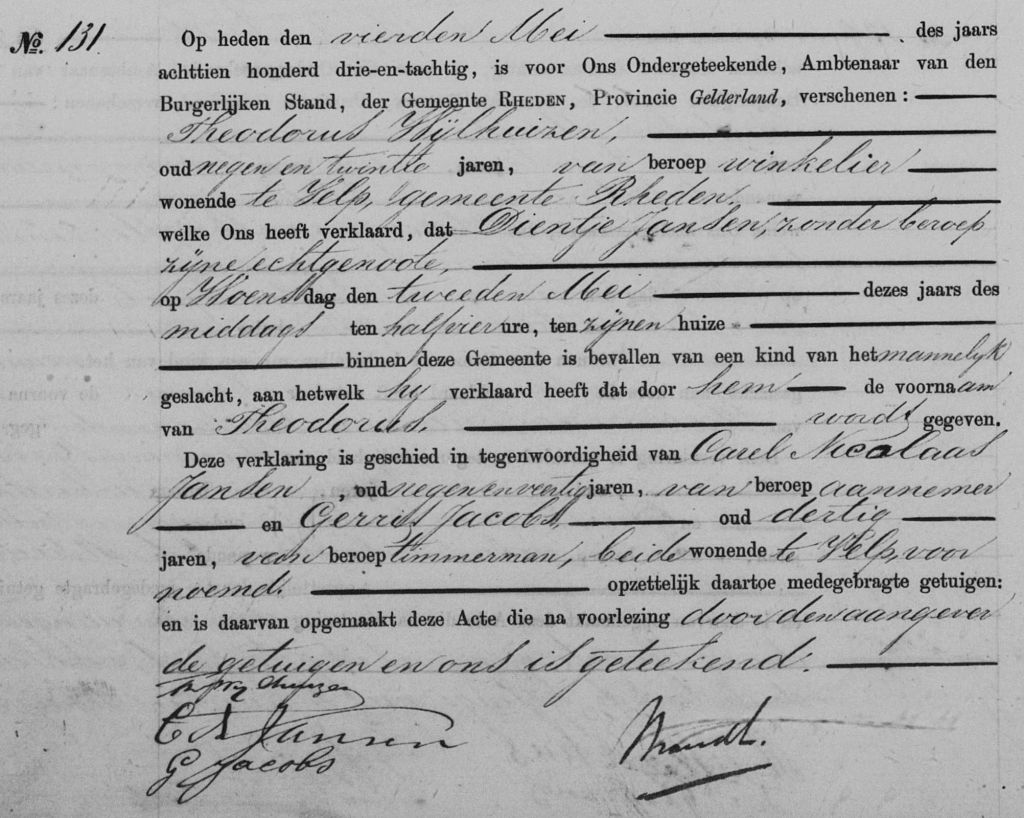 No. 131
Op heden den vierden Mei des jaars
achttien honderd drie-en-tachtig, is voor Ons Ondergeteekende, Ambtenaar van den
Burgerlijken Stand, der Gemeente RHEDEN, Provincie Gelderland, verschenen:
Theodorus Wijlhuizen,
oud negen en twintig jaren, van beroep winkelier
wonende te Velp, gemeente Rheden,
welke Ons heeft verklaard, dat Dientje Jansen, zonder beroep
zijne echtgenoote,
op Woensdag den tweeden Mei dezes jaars des
middags ten half vier ure, ten zijnen huize
binnen deze Gemeente is bevallen van een kind van het mannelijk
geslacht, aan hetwelk hij verklaard heeft dat door hem de voornaam
van Theodorus, wordt gegeven.
Deze verklaring is geschied in tegenwoordigheid van Carel Nicolaas
Jansen, oud negen en veertig jaren, van beroep aannemer
en Gerrit Jacobs, oud dertig
jaren, van beroep timmerman, beide wonende te Velp, voor
noemd. opzettelijk daartoe medegebragte getuigen:
en is daarvan opgemaakt deze Acte die na voorlezing door den aangever
de getuigen en ons is geteekend.
C N Jansen
G Jacobs
Brandt.